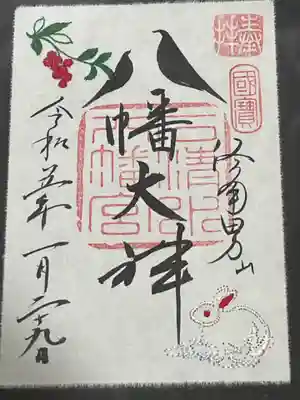 國寶
洛南男山
八幡大神
石清水
八幡宮
令和五年一月二十九日